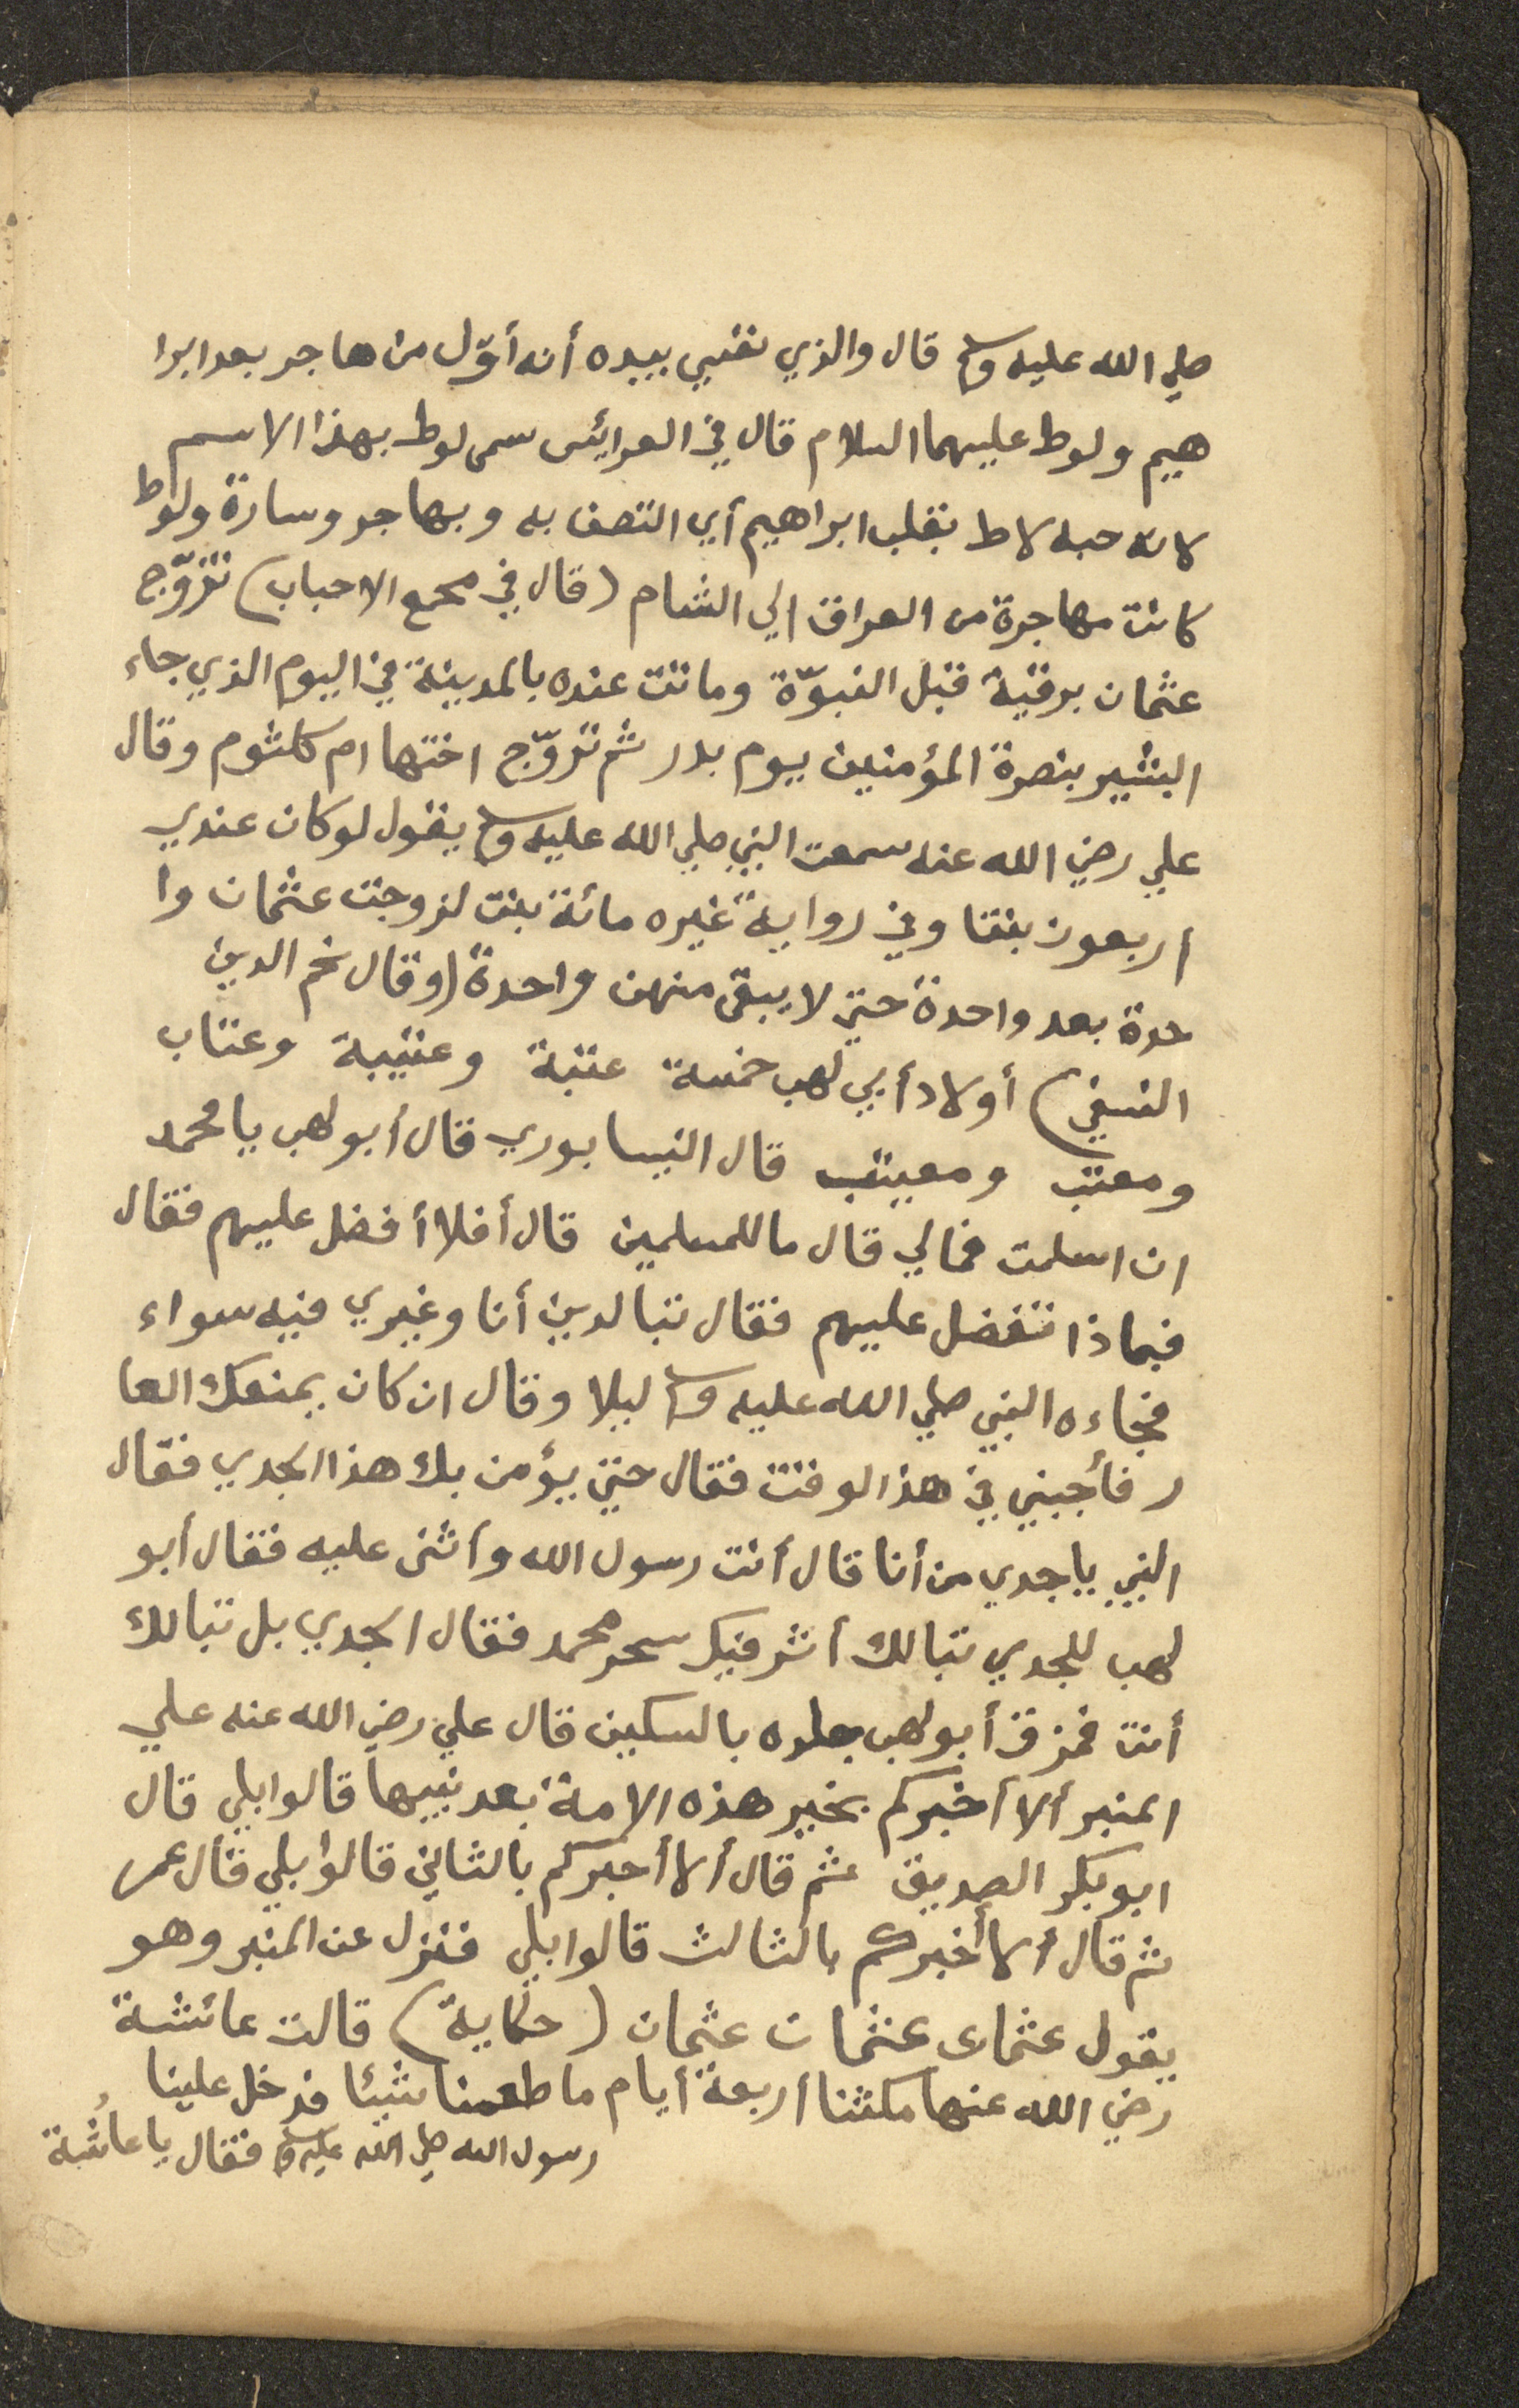 صلي الله عليه وسلم قال والذي نفسي بيده أنه أوّل من هاجر بعد ابرا
هيم ولوط عليهما السلام قال في العرائس سمى لوط بهذا الاسم
لانه حبه لاط بقلب ابراهيم أي التصق به وبهاجر وسارة ولوط
كانت مهاجرة من العراق الي الشام (قال في مجمع الاحباب) تزوّج
عثمان برقية قبل النبوّة وماتت عنده بالمدينة في اليوم الذي جاء
البشير بنصرة المؤمنين يوم بدر ثم تزوّج اختها ام كلثوم وقال
علي رضي الله عنه سمعت النبي صلي الله عليه وسلم يقول لو كان عندي
اربعون بنتا وفي رواية غيره مائة بنت لزوجت عثمان وا
حدة بعد واحدة حتي لا يبقى منهن واحدة (وقال نجم الدين
النسفي) أولاد أبي لهب خمسة عتبة وعتيبة وعتاب
ومعتب ومعيتب قال النيسابوري قال أبو لهب يا محمد
ان اسلمت فمالي قال ما للمسلمين قال أفلا أفضل عليهم فقال
فبماذا تفضل عليهم فقال تبا لدين أنا وغيري فيه سواء
فجاءه النبي صلي الله عليه وسلم ليلا وقال ان كان يمنعك العا
ر فأجبني في هذا الوقت فقال حتي يؤمن بك هذا الجدي فقال
النبي يا جدي من أنا قال أنت رسول الله وأثنى عليه فقال أبو
لهب للجدي تبا لك أثر فيك سحر محمد فقال الجدي بل تبا لك
أنت فمزق أبو لهب جلده بالسكين قال علي رضي الله عنه علي
المنبر ألا أخبركم بخير هذه الامة بعد نبيها قالوا بلي قال
ابو بكر الصديق ثم قال ألا أخبركم بالثاني قالوا بلي قال عمر
ثم قال ألا أخبركم بالثالث قالوا بلي فنزل عن المنبر وهو
يقول عثمان عثمان عثمان (حكاية) قالت عائشة
رضي الله عنها مكثنا أربعة أيام ما طعمنا شيئا فدخل علينا
رسول الله صلي الله عليه وسلم فقال يا عائشة